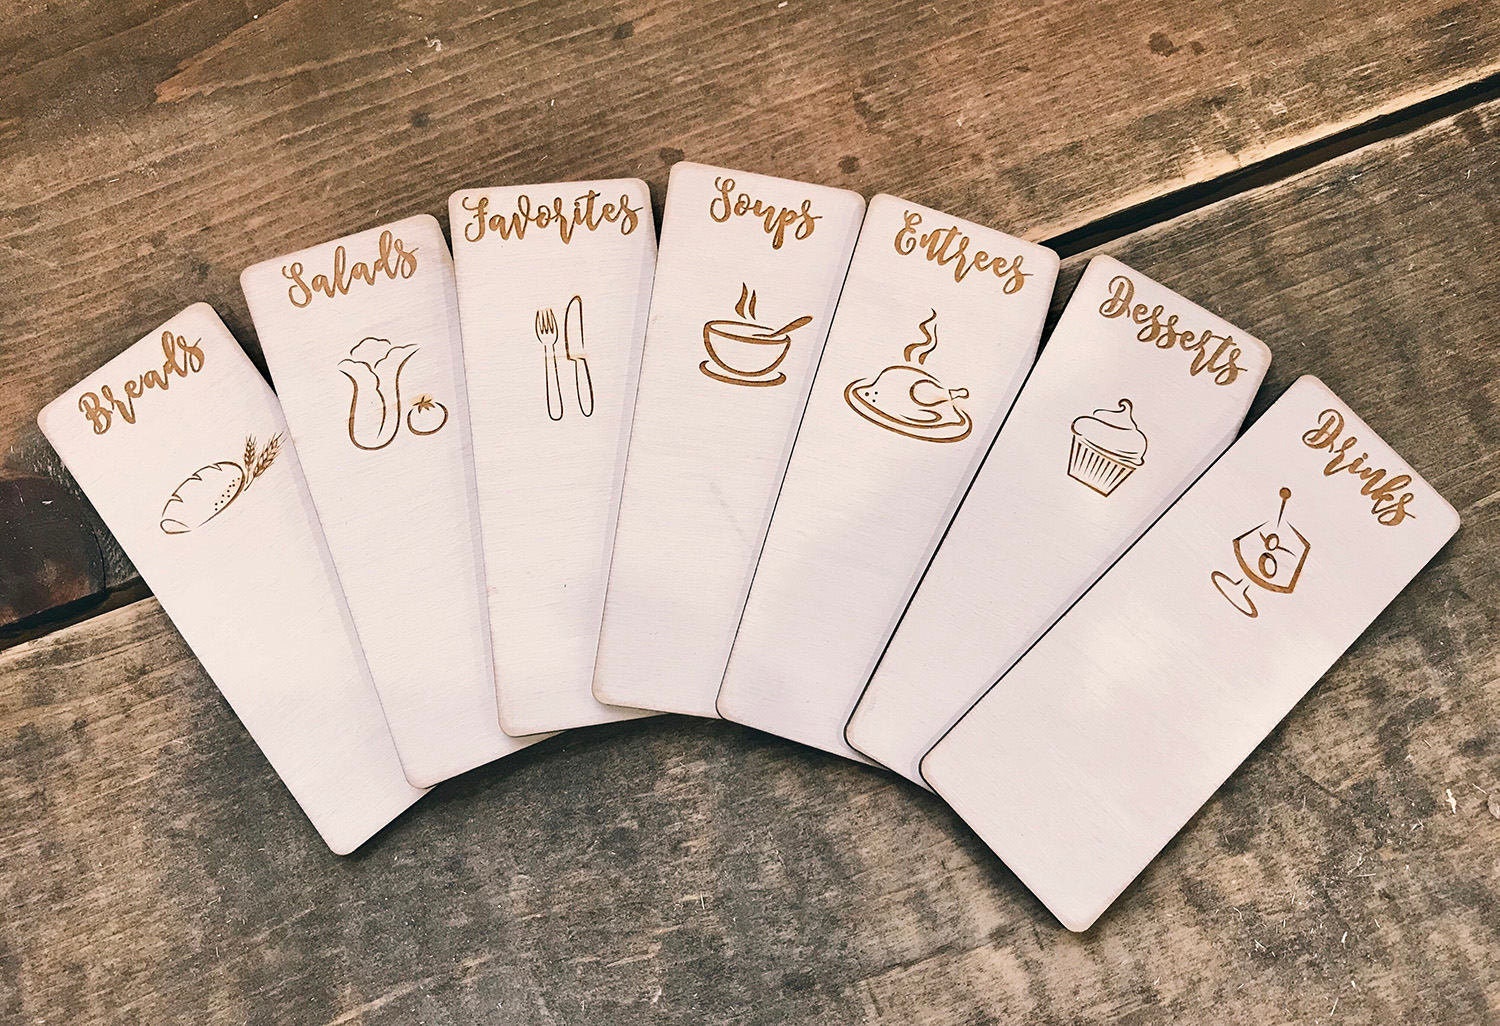 Breads
Salads
Favorites
Soups
Entrees
Desserts
Drinks